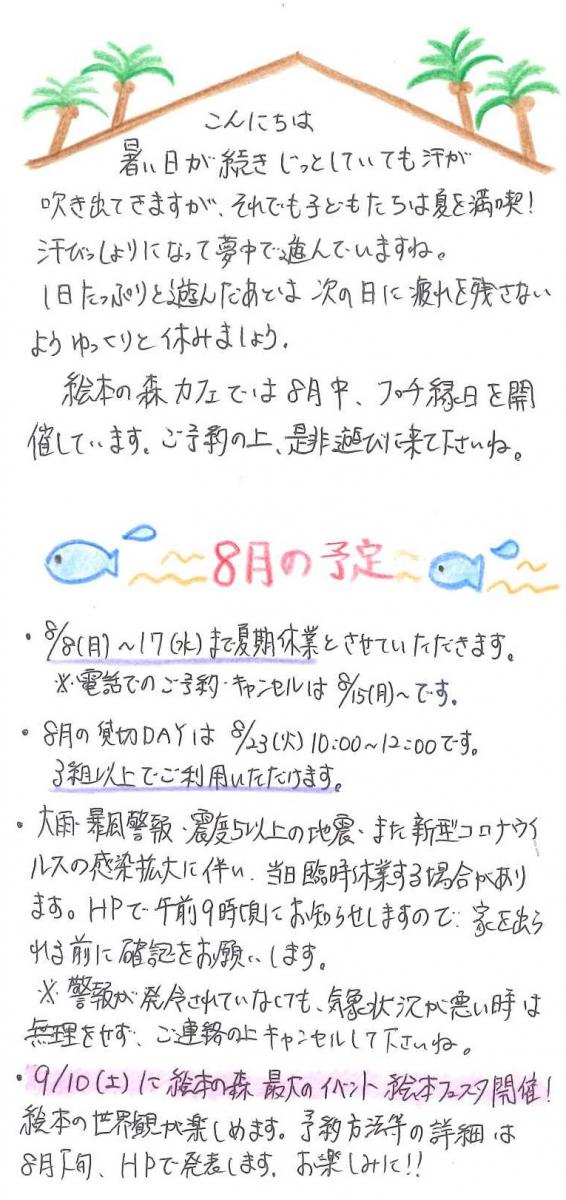 こんにちは
暑い日が続きじっとしていても汗が
吹き出てきますが、それでも子どもたちは夏を満喫!
汗びっしょりになって夢中で遊んでいますね。
1日たっぷりと遊んだあとは次の日に疲れを残さない
ようゆっくりと休みましょう。
絵本の森カフェでは8月中、プチ縁日を開
催しています。ご予約の上、是非遊びに来て下さいね。
8月の予定
・8/8(月)～17(水)まで夏期休業とさせていただきます。
※電話でのご予約・キャンセルは8/15(月)～です。
・8月の貸切DAYは 8/23(火)10:00～12:00です。
3組以上でご利用いただけます。
・大雨・暴風警報・震度5以上の地震・また新型コロナウイ
ルスの感染拡大に伴い、当日臨時休業する場合があり
ます。HPで午前9時頃にお知らせしますので、家を出ら
れる前に確認をお願いします。
※警報が発令されていなくても、気象状況が悪い時は
無理をせず、ご連絡の上キャンセルして下さいね。
・9/10(土)に絵本の森 最大のイベント 絵本フェスタ開催!
絵本の世界観が楽しめます。予約方法等の詳細は
8月下旬、HPで発表します。お楽しみに!!